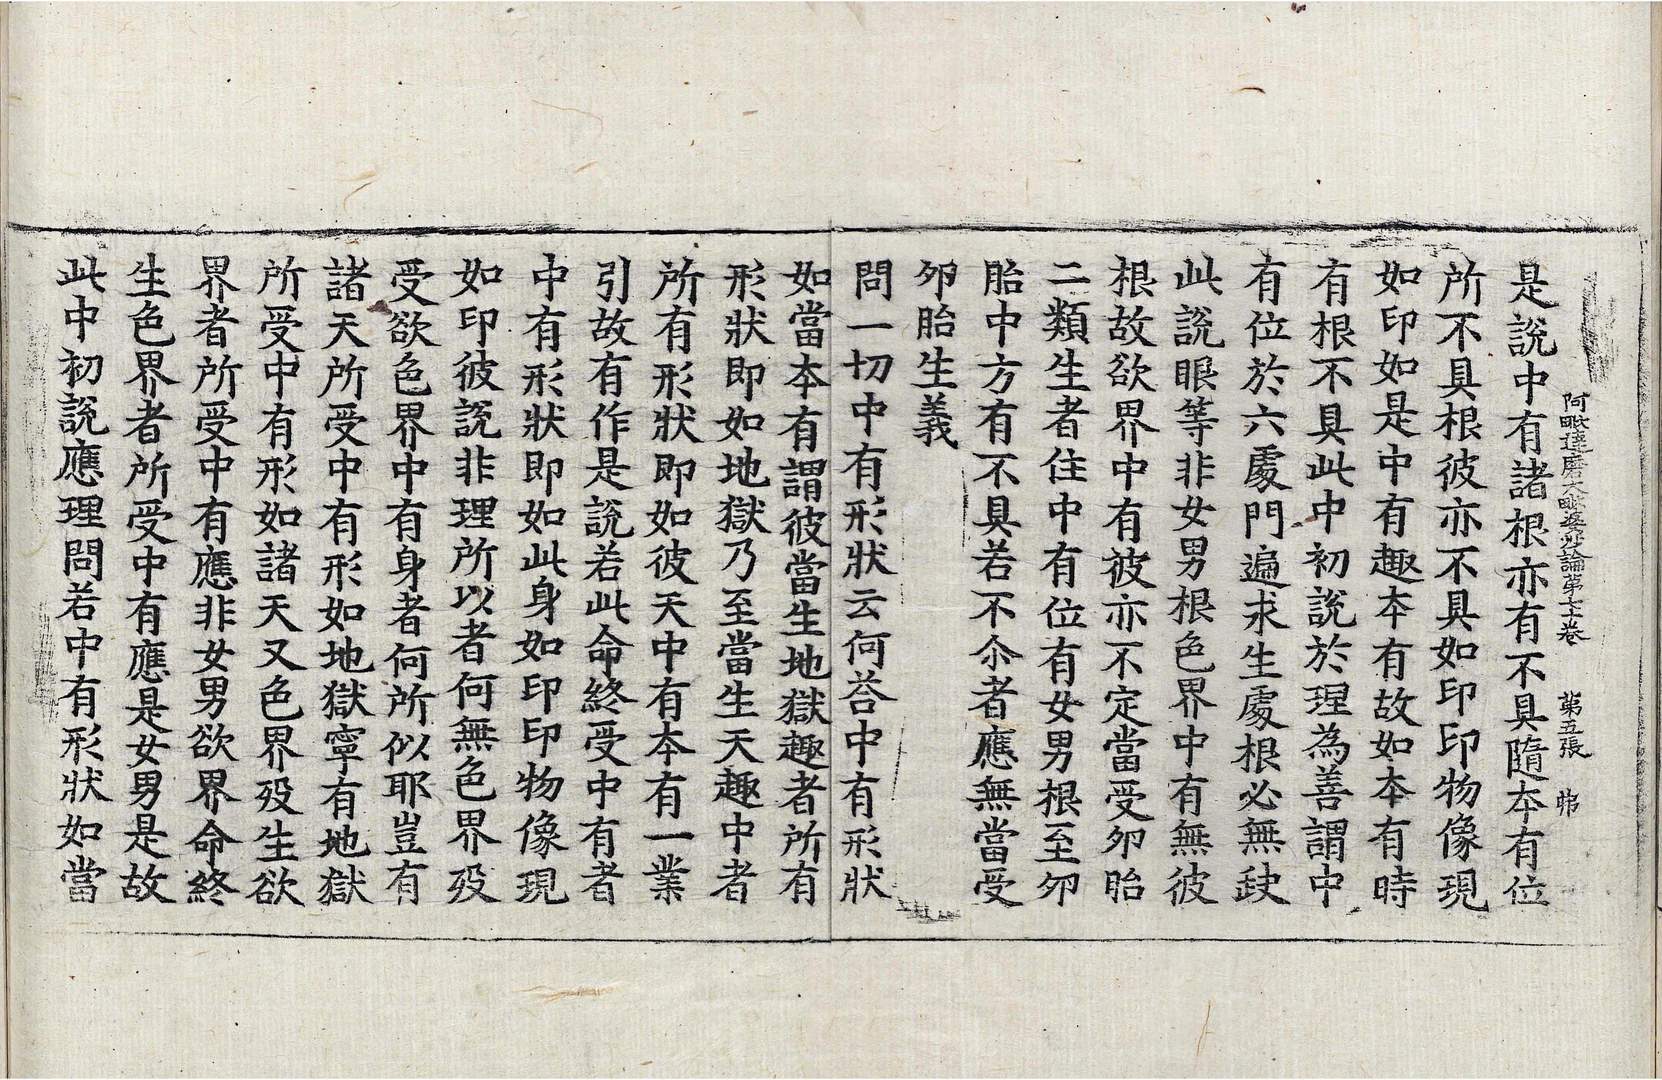 阿毗達磨大毗婆沙論第七十卷　第五張　帋
是說中有諸根亦有不具隨本有位
所不具根彼亦不具如印印物像現
如印如是中有趣本有故如本有時
有根不具此中初說於理為善謂中
有位於六處門遍求生處根必無缺
此說眼等非女男根色界中有無彼
根故欲界中有彼亦不定當受夘胎
二類生者住中有位有女男根至夘
胎中方有不具若不尒者應無當受
夘胎生義
問一切中有形狀云何荅中有形狀
如當本有謂彼當生地獄趣者所有
形狀即如地獄乃至當生天趣中者
所有形狀即如彼天中有本有一業
引故有作是說若此命終受中有者
中有形狀即如此身如印印物像現
如印彼說非理所以者何無色界歿
受欲色界中有身者何所似耶豈有
諸天所受中有形如地獄寧有地獄
所受中有形如諸天又色界歿生欲
界者所受中有應非女男欲界命終
生色界者所受中有應是女男是故
此中初說應理問若中有形狀如當